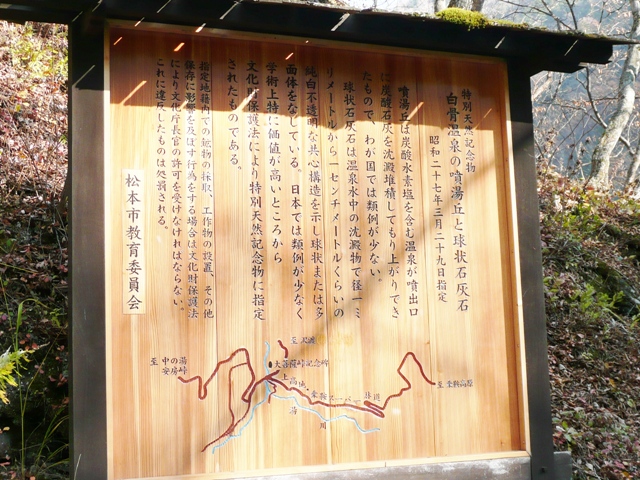 特別天然記念物
白骨温泉の噴湯丘と球状石灰石
昭和二十七年三月二十九日指定
噴湯丘は炭酸水素塩を含む温泉が噴出口
に炭酸石灰を沈澱堆積してもり上がりてき
たもので、わが国では類例が少ない。
球状石灰石は温泉水中の沈澱物で径一ミ
リメートルから一センチメートルくらいの
純白不透明な共心構造を示し球状または多
面体をなしている。日本では類例が少なく
学術上特に価値が高いところから
文化財保護法により特別天然記念物に指定
されたものである。
指定地籍内での鉱物の採取、工作物の設置、その他
保存に影響を及ぼす行為をする場合は文化財保護法
により文化庁長官の許可を受けなければならない。
これに違反したものは処罰される。
松本市教育委員会
至 沢渡
大菩薩峠記念碑
至 中の湯
安房峠
上高地
乗鞍スーパー林道
至乗鞍高原
湯川